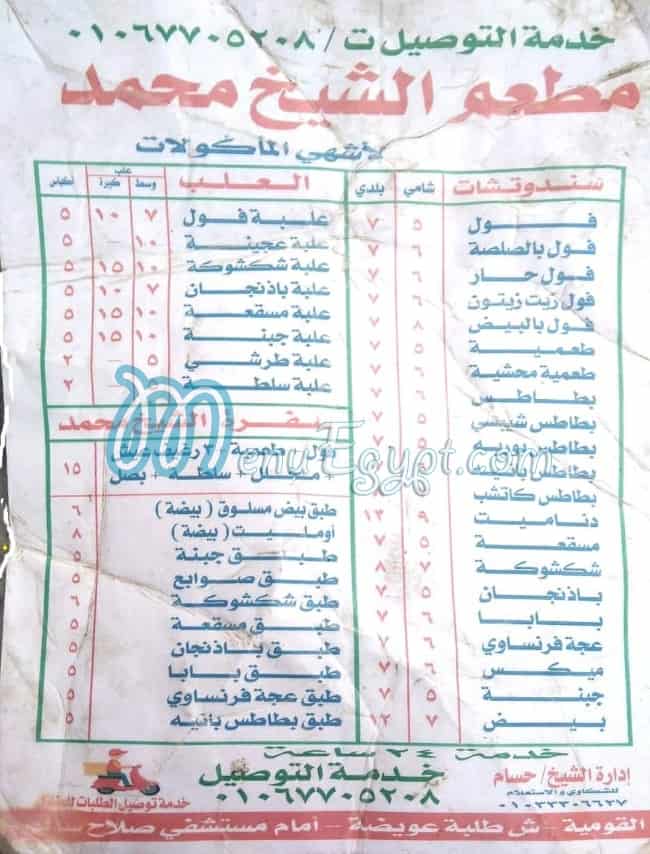 خدمة التوصيل ت / ٠١٠٦٧٧٠٥٢٠٨
مطعم الشيخ محمد
لأشهي المأكولات
سندوتشات شامي بلدي
فول ٥ ٧
فول بالصلصة ٦ ٧
فول حار ٦ ٧
فول زيت زيتون ٦ ٧
فول بالبيض ٨ ٧
طعمية ٥ ٧
طعمية محشية ٦ ٧
بطاطس ٦ ٧
بطاطس شيبسي ٥ ٧
بطاطس بوريه ٧
بطاطس
بطاطس كاتشب
دناميت ٩ ١٢
مسقعة ٥ ٧
شكشوكة ٧ ٨
باذنجان ٥ ٧
بابا ٦ ٧
عجة فرنساوي ٦ ٧
ميكس ٦ ٧
جبنة ٥ ٧
بيض ٧ ١٢
العلب
علب
وسط كبيرة أكياس
علبة فول ٧ ١٠ ٥
علبة عجينة ١٠ — ٥
علبة شكشوكة ١٠ ١٥ ٥
علبة باذنجان ٧ ١٠ ٥
علبة مسقعة ١٠ ١٥ ٥
علبة جبنة ١٠ ١٥ ٥
علبة طرشي ٥ — ٢
علبة سلطة — ٢
سفرة الشيخ محمد
فول طعمية ٢ رغيف
+ مخلل + سلطة + بصل ١٥
طبق بيض مسلوق ( بيضة ) ٦
أومليت ( بيضة ) ٨
طبق جبنة ٥
طبق صوابع ٥
طبق شكشوكة ٦
طبق مسقعة ٥
طبق باذنجان ٥
طبق بابا ٥
طبق عجة فرنساوي ٥
طبق بطاطس بانيه ٥
MenuEgypt.com
خدمة ٢٤ ساعة
خدمة التوصيل
٠١٠٦٧٧٠٥٢٠٨
إدارة الشيخ / حسام
للشكاوي والاستعلام
٠١٠٣٣٣٠٦٦٣٧
خدمة توصيل الطلبات
القومية - ش طلبة عويضة - أمام مستشفي صلاح